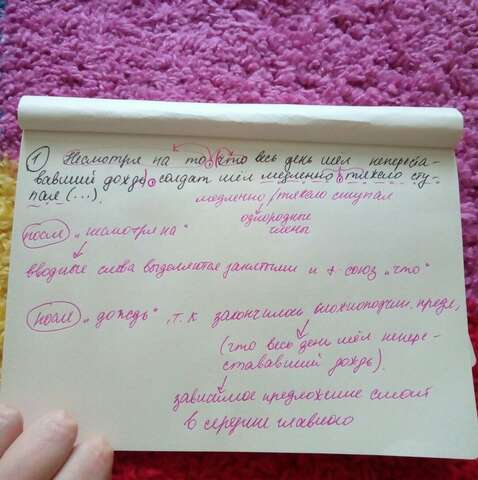 ① Несмотря на то, что весь день шёл непереста-
вавший дождь, солдат шёл медленно, тяжело сту-
пале (...).
медленно / тяжело ступал
однородные
члены
после „несмотря на"
вводные слова выделяются запятыми и + союз „что"
после „дождь", т.к закончилось сложноподчин. предл,
(что весь день шёл непере-
стававший дождь).
зависимое предложение стоит
в середине главного